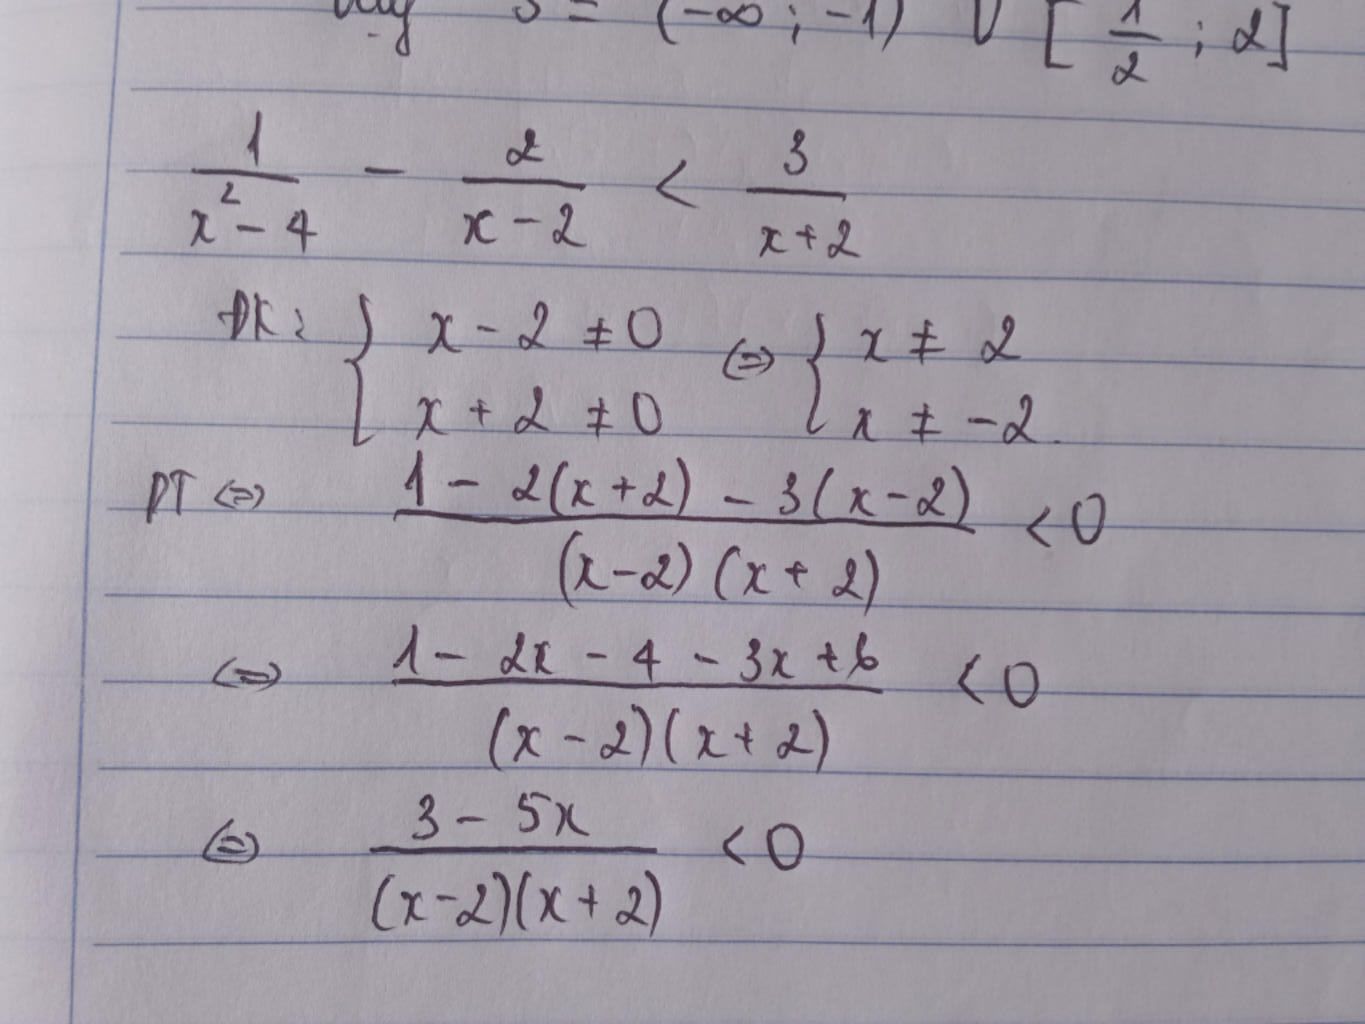 S = (-∞ ; -1) ∪ [1/2 ; 2]
1/(x² - 4) - 2/(x - 2) < 3/(x + 2)
ĐK: { x - 2 ≠ 0 ⇔ { x ≠ 2
x + 2 ≠ 0 x ≠ -2
PT ⇔ (1 - 2(x + 2) - 3(x - 2))/((x - 2)(x + 2)) < 0
⇔ (1 - 2x - 4 - 3x + 6)/((x - 2)(x + 2)) < 0
⇔ (3 - 5x)/((x - 2)(x + 2)) < 0